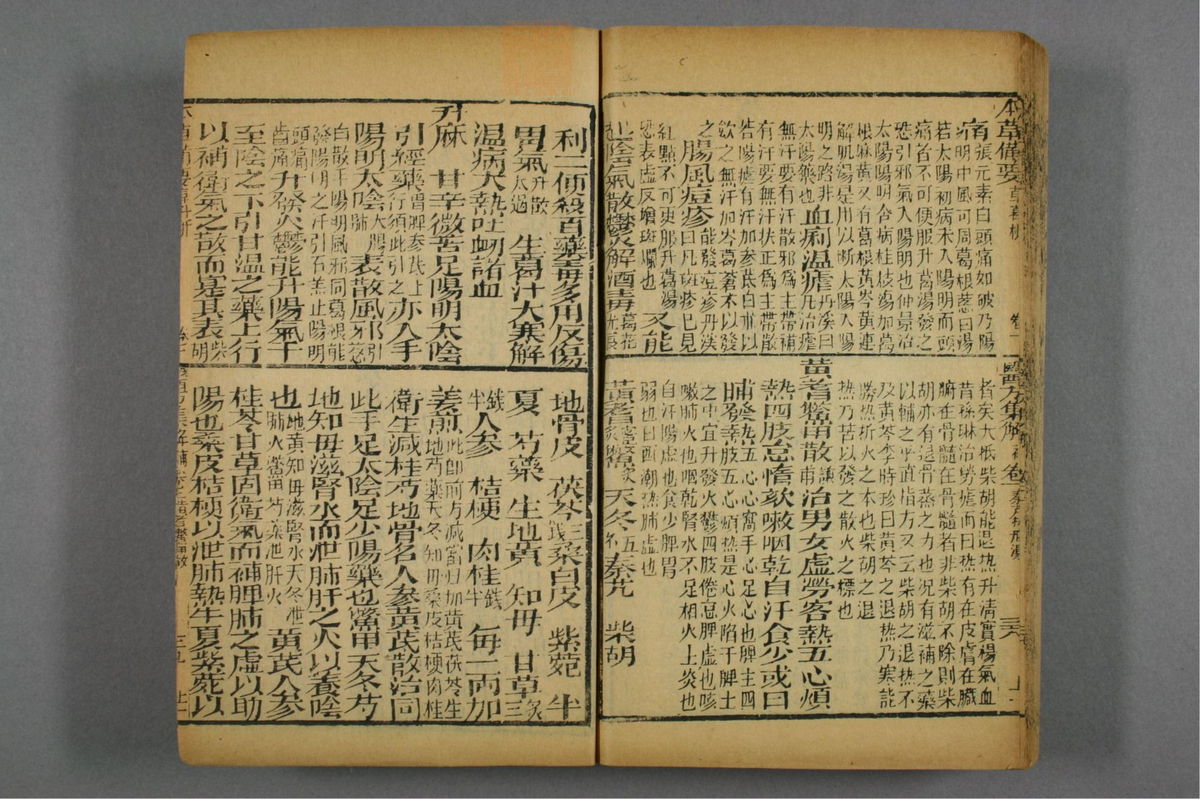 本草備要 草部葛根 卷一
痛張元素曰頭痛如破乃陽明中風可同葛根葱白湯
若太陽初病未入陽明而頭痛者不可便服升葛湯發之
恐引邪氣入陽明也仲景治太陽陽明合病桂枝湯加葛
根麻黃又有葛根黃芩黃連解肌湯是用以断太陽入陽
明之路非太陽藥也血痢溫瘧丹溪曰凡治瘧
無汗要有汗散邪為主帶補有汗要無汗扶正為主帶散
若陽瘧有汗加參茋白朮以斂之無汗加芩葛蒼朮以發
之腸風痘疹能發痘疹丹溪曰凡斑疹已見
紅點不可更服升葛湯恐表虛反增斑爛也又能
起陰氣散鬱火解酒毒葛花尤良
利二便殺百藥毒多用反傷
胃氣升散太過 生葛汁大寒解
溫病大熱吐衂諸血
升麻 甘辛微苦足陽明太陰
引經藥胃脾參芪上行須此引之亦入手
陽明太陰大腸肺表散風邪引
白散手陽明風邪同葛根能發陽明之汗引石羔止陽明
頭痛齒痛升發火鬱能升陽氣于
至陰之下引甘温之藥上行
以補衛氣之散而實其表柴胡
醫方集解 補卷 秦艽扶羸湯 三六 上一
者矣大抵柴胡能退热升清實楊氣血
昔孫琳治勞瘧而曰热有在皮膚在臟
腑在骨髓在骨髓者非柴胡不除則柴
胡亦有退骨蒸之力也况有滋補之藥
以輔之乎直指方又云柴胡之退热不
及黄芩李時珍曰黄芩之退热乃寒能
勝热折火之本也柴胡之退
热乃苦以發之散火之標也
黃耆鱉甲散謙甫治男女虛勞客熱五心煩
熱四肢怠惰欬嗽咽乾自汗食少或日
晡發熱五心心窩手心足心也脾主四肢五心煩热是心火陷于脾土
之中宜升發火鬱四肢倦怠脾虚也咳嗽肺火也咽乾腎水不足相火上炎也
自汗陽虚也食少脾胃弱也日晡潮热肺虚也
黃耆蜜炙鱉甲 天冬五錢秦艽 柴胡
地骨皮 茯苓三錢桑白皮 紫菀 半
夏 芍藥 生地黄 知毋 甘草炙三
錢半人參 桔梗 肉桂錢半 每一兩加
姜煎此即前方減當归加黄芪茯苓生地芍藥天冬知毋桑皮桔梗肉桂
衛生減桂芍地骨名人參黃芪散治同
此手足太陰足少陽藥也鱉甲天冬芍
地知毋滋腎水而泄肺肝之火以養陰
也地黄知毋滋腎水天冬泄肺火鱉甲芍藥泄肝火黃芪人參
桂苓甘草固衛氣而補脾肺之虛以助
陽也桑皮桔梗以泄肺熱半夏紫菀以